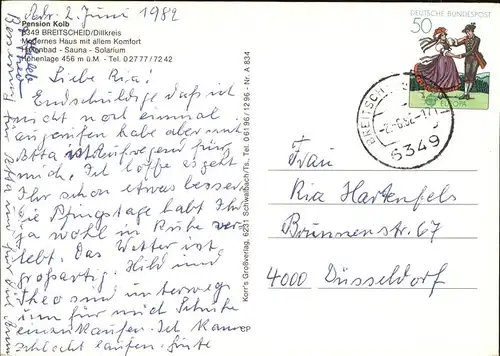 Adr. 2. Juni 1982
Pension Kolb
6349 BREITSCHEID/Dillkreis
Modernes Haus mit allem Komfort
Hallenbad - Sauna - Solarium
Höhenlage 456 m ü.M. - Tel. 0 27 77 / 72 42
Liebe Ria!
Endschuldige daß ich
nicht noch einmal
angerufen habe aber mit
ist Aufregend für
mich. Ich hoffe es geht
Ihr schon etwas besser.
Die Pfingstage habt Ihr
ja wohl in Ruhe ver-
lebt. Das Wetter ist
großartig. Hild und
Theo sind unterwegs
um für mich Schuhe
einzukaufen. Ich kann
schlecht laufen.
Besserung für
und für
Korr's Großverlag, 6231 Schwalbach/Ts. Tel. 06196/1296 - Nr. A 834
DEUTSCHE BUNDESPOST
50
EUROPA
BREITSCH
-2.6.82-17
6349
Frau
Ria Hartenfels
Brunnenstr. 67
4000 Düsseldorf